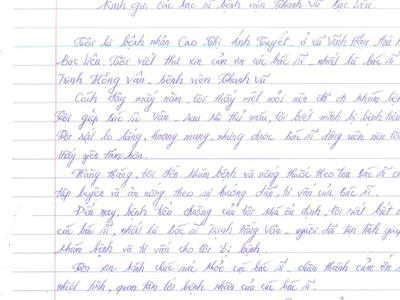 Kính gửi các bác sĩ bệnh viện Thanh Vũ Bạc Liêu.
Tôi là bệnh nhân Cao Thị Ánh Tuyết, ở xã Vĩnh Hậu
Bạc Liêu. Tôi viết thư xin cảm ơn các bác sĩ, nhất là bác sĩ
Trịnh Hồng Vân - bệnh viện Thanh Vũ
Cách đây mấy năm, tôi thấy mệt mỏi nên đi khám bệnh
Tôi gặp bác sĩ Vân - sau khi thử máu, tôi biết mình bị bệnh tiểu
rất lo lắng, hoang mang, nhưng được bác sĩ động viên nên tôi
thấy yên tâm hơn.
Hàng tháng, tôi đến khám bệnh và uống thuốc theo toa bác sĩ
tập luyện và ăn uống theo sự hướng dẫn, tư vấn của bác sĩ.
Đến nay, bệnh tiểu đường của tôi khá ổn định, tôi rất biết ơn
các bác sĩ, nhất là bác sĩ Trịnh Hồng Vân - người đã tận tình
khám bệnh và tư vấn cho tôi trị bệnh.
Tôi xin kính chúc sức khỏe các bác sĩ - chân thành cảm ơn
nhiệt tình, quan tâm tới bệnh nhân của các bác sĩ.